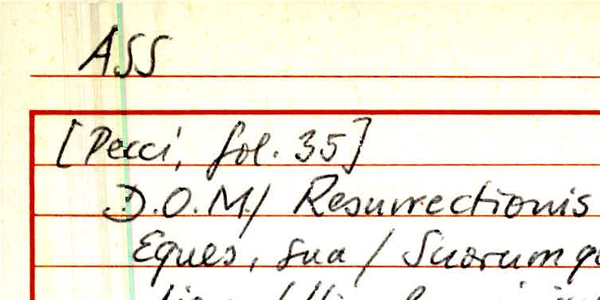 ASS
[Pecci, fol. 35]
D.O.M/ Resurrectionis
Eques, sua / Suorumq